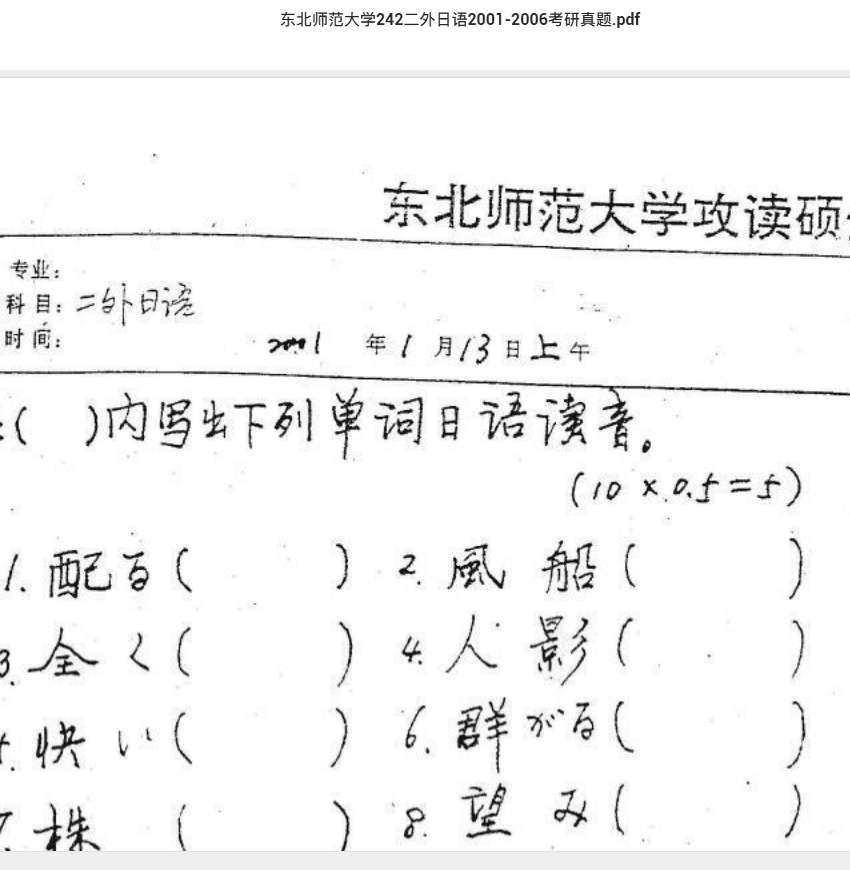 东北师范大学242二外日语2001-2006考研真题.pdf
东北师范大学攻读硕
专业：
科目：二外日语
时间：
2001 年 1 月 13 日 上午
( )内写出下列单词日语读音。
(10 × 0.5 = 5)
1. 配る ( ) 2. 風船 ( )
3. 全く ( ) 4. 人影 ( )
快い ( ) 6. 群がる ( )
株 ( ) 8. 望み ( )